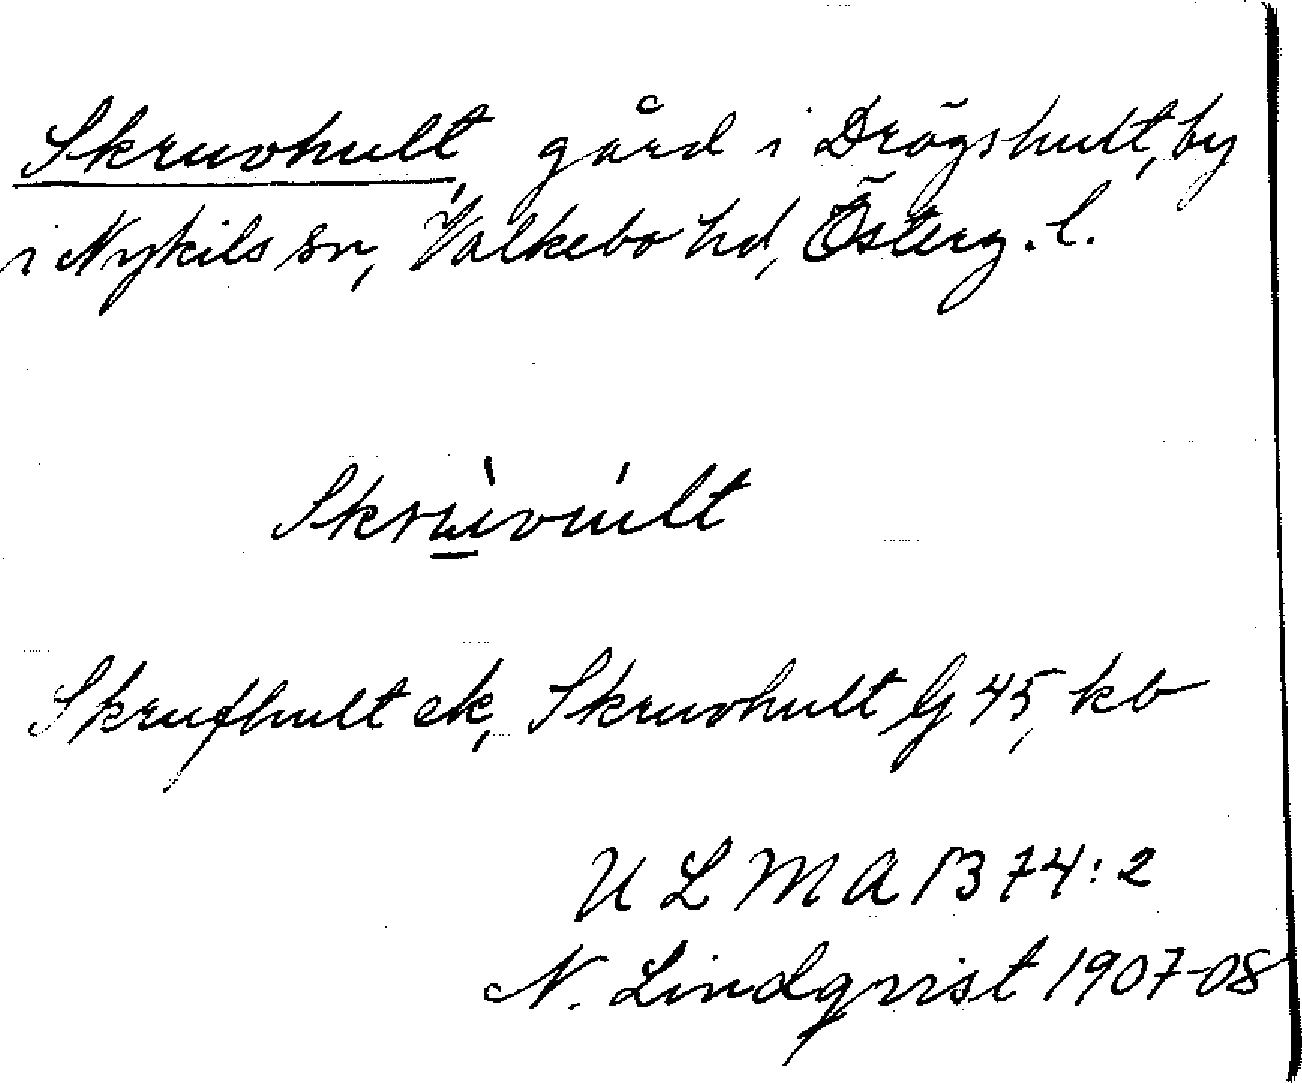 Skruvhult, gård i Drögshult, by
i Nykils sn, Valkebo hd, Österg. l.
Skrù̲vúlt
Skrufhult ek, Skruvhult G 45, kb
ULMA 1374:2
N. Lindqvist 1907-08